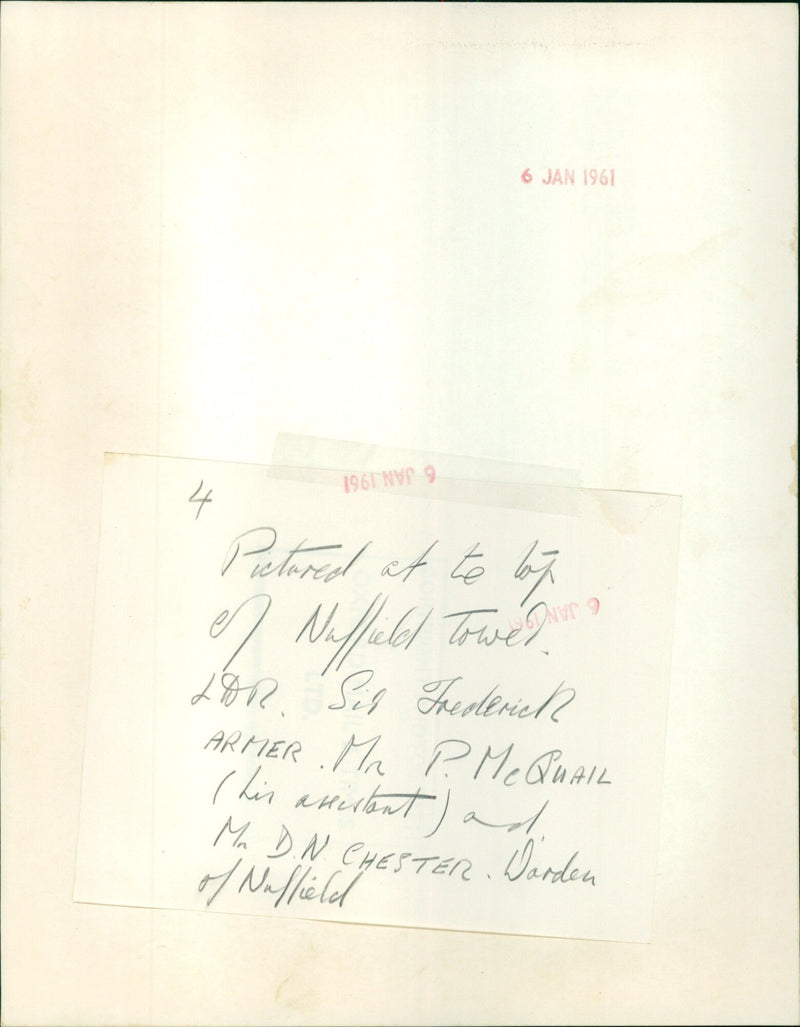 6 JAN 1961
6 JAN 1961
4
Pictured at te top
of Nuffield Tower.
6 JAN 1961
LDR. Sir Frederick
ARMER. Mr P. McQUAIL
(his assistant) and
Mr D.N. CHESTER. Warden
of Nuffield